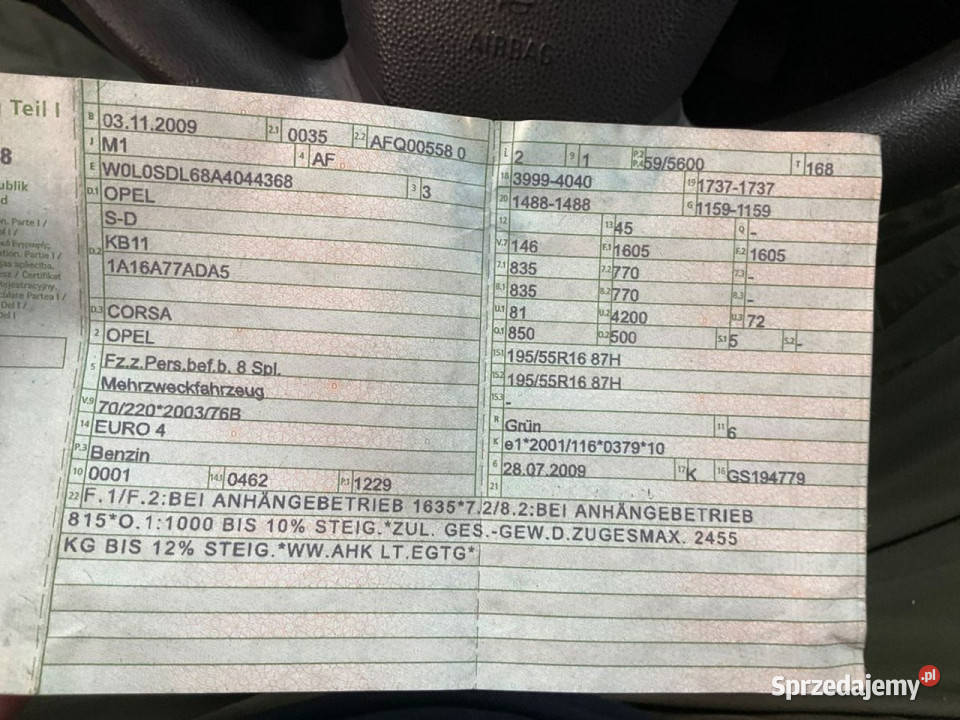 AIRBAG
Teil I
8
publik
d
B 03.11.2009 2.1 0035 2.2 AFQ00558 0
J M1 4 AF
E W0L0SDL68A4044368 3 3
D.1 OPEL
S-D
D.2 KB11
1A16A77ADA5
D.3 CORSA
2 OPEL
5 Fz.z.Pers.bef.b. 8 Spl.
Mehrzweckfahrzeug
V.9 70/220*2003/76B
14 EURO 4
P.3 Benzin
10 0001 14.1 0462 P.1 1229
L 2 9 1 P.2 P.4 59/5600 T 168
18 3999-4040 19 1737-1737
20 1488-1488 G 1159-1159
12 13 45 Q -
V.7 146 F.1 1605 F.2 1605
7.1 835 7.2 770 7.3 -
8.1 835 8.2 770 8.3 -
U.1 81 U.2 4200 U.3 72
O.1 850 O.2 500 S.1 5 S.2 -
15.1 195/55R16 87H
15.2 195/55R16 87H
15.3 -
R Grün 11 6
K e1*2001/116*0379*10
6 28.07.2009 17 K 16 GS194779
21
22 F.1/F.2:BEI ANHÄNGEBETRIEB 1635*7.2/8.2:BEI ANHÄNGEBETRIEB
815*O.1:1000 BIS 10% STEIG.*ZUL. GES.-GEW.D.ZUGESMAX. 2455
KG BIS 12% STEIG.*WW.AHK LT.EGTG*
Sprzedajemy.pl